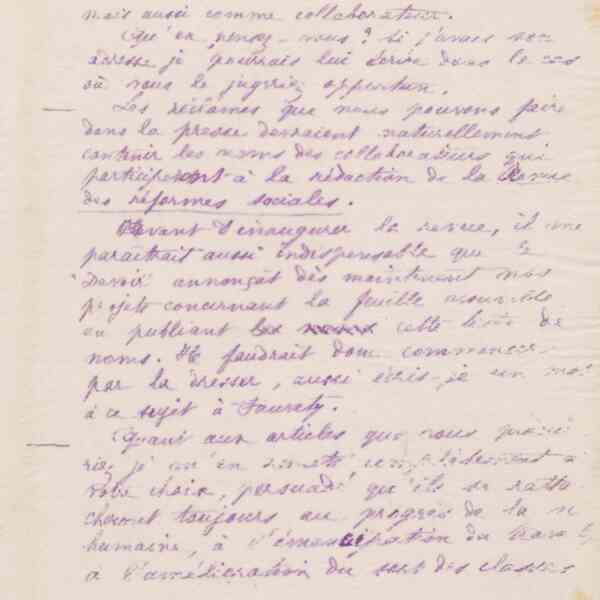 mais aussi comme collaborateur.
Qu'en pensez-vous? Si j'avais son
adresse je pourrais lui écrire dans le cas
où vous le jugeriez opportun.
Les réclames que nous pouvons faire
dans la presse devraient naturellement
contenir les noms des collaborateurs qui
participeront à la rédaction de la Revue
des réformes sociales.
Avant d'inaugurer la revue, il me
paraîtrait aussi indispensable que le
"Devoir" annonçât dès maintenant nos
projets concernant la feuille nouvelle
en publiant cette liste de
noms. Il faudrait donc commencer
par la dresser, aussi écris-je un mot
à ce sujet à Fauvety.
Quant aux articles que vous
riez je m'en remets complètement à
votre choix, persuadé qu'ils se ratta
cheront toujours au progrès de la
humaine, à l'émancipation du
à l'amélioration du sort des classes